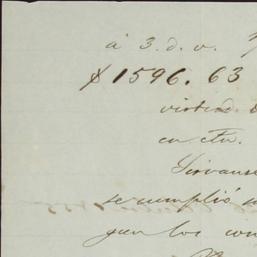 á 3. d. v.
$1596. 63
virtud
en cta.
Sirvanse
se cumplió
gun los con